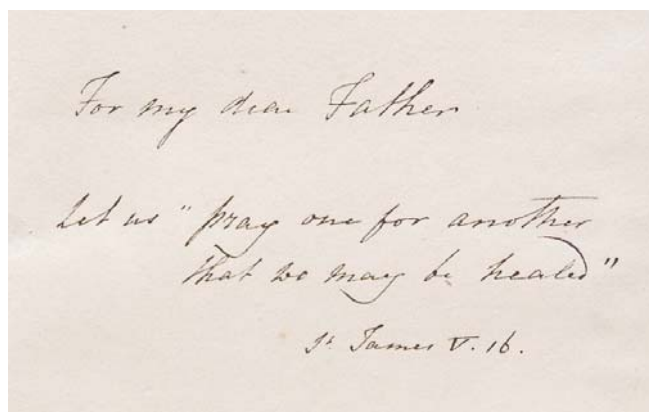 For my dear Father
Let us "pray one for another
that we may be healed"
St. James V. 16.